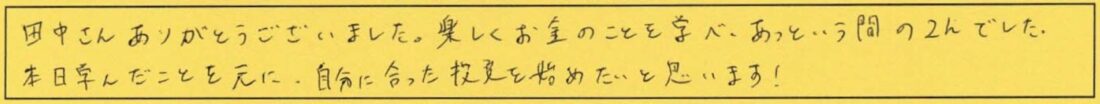 田中さんありがとうございました。楽しくお金のことを学べ、あっという間の2hでした.
本日学んだことを元に、自分に合った投資を始めたいと思います!